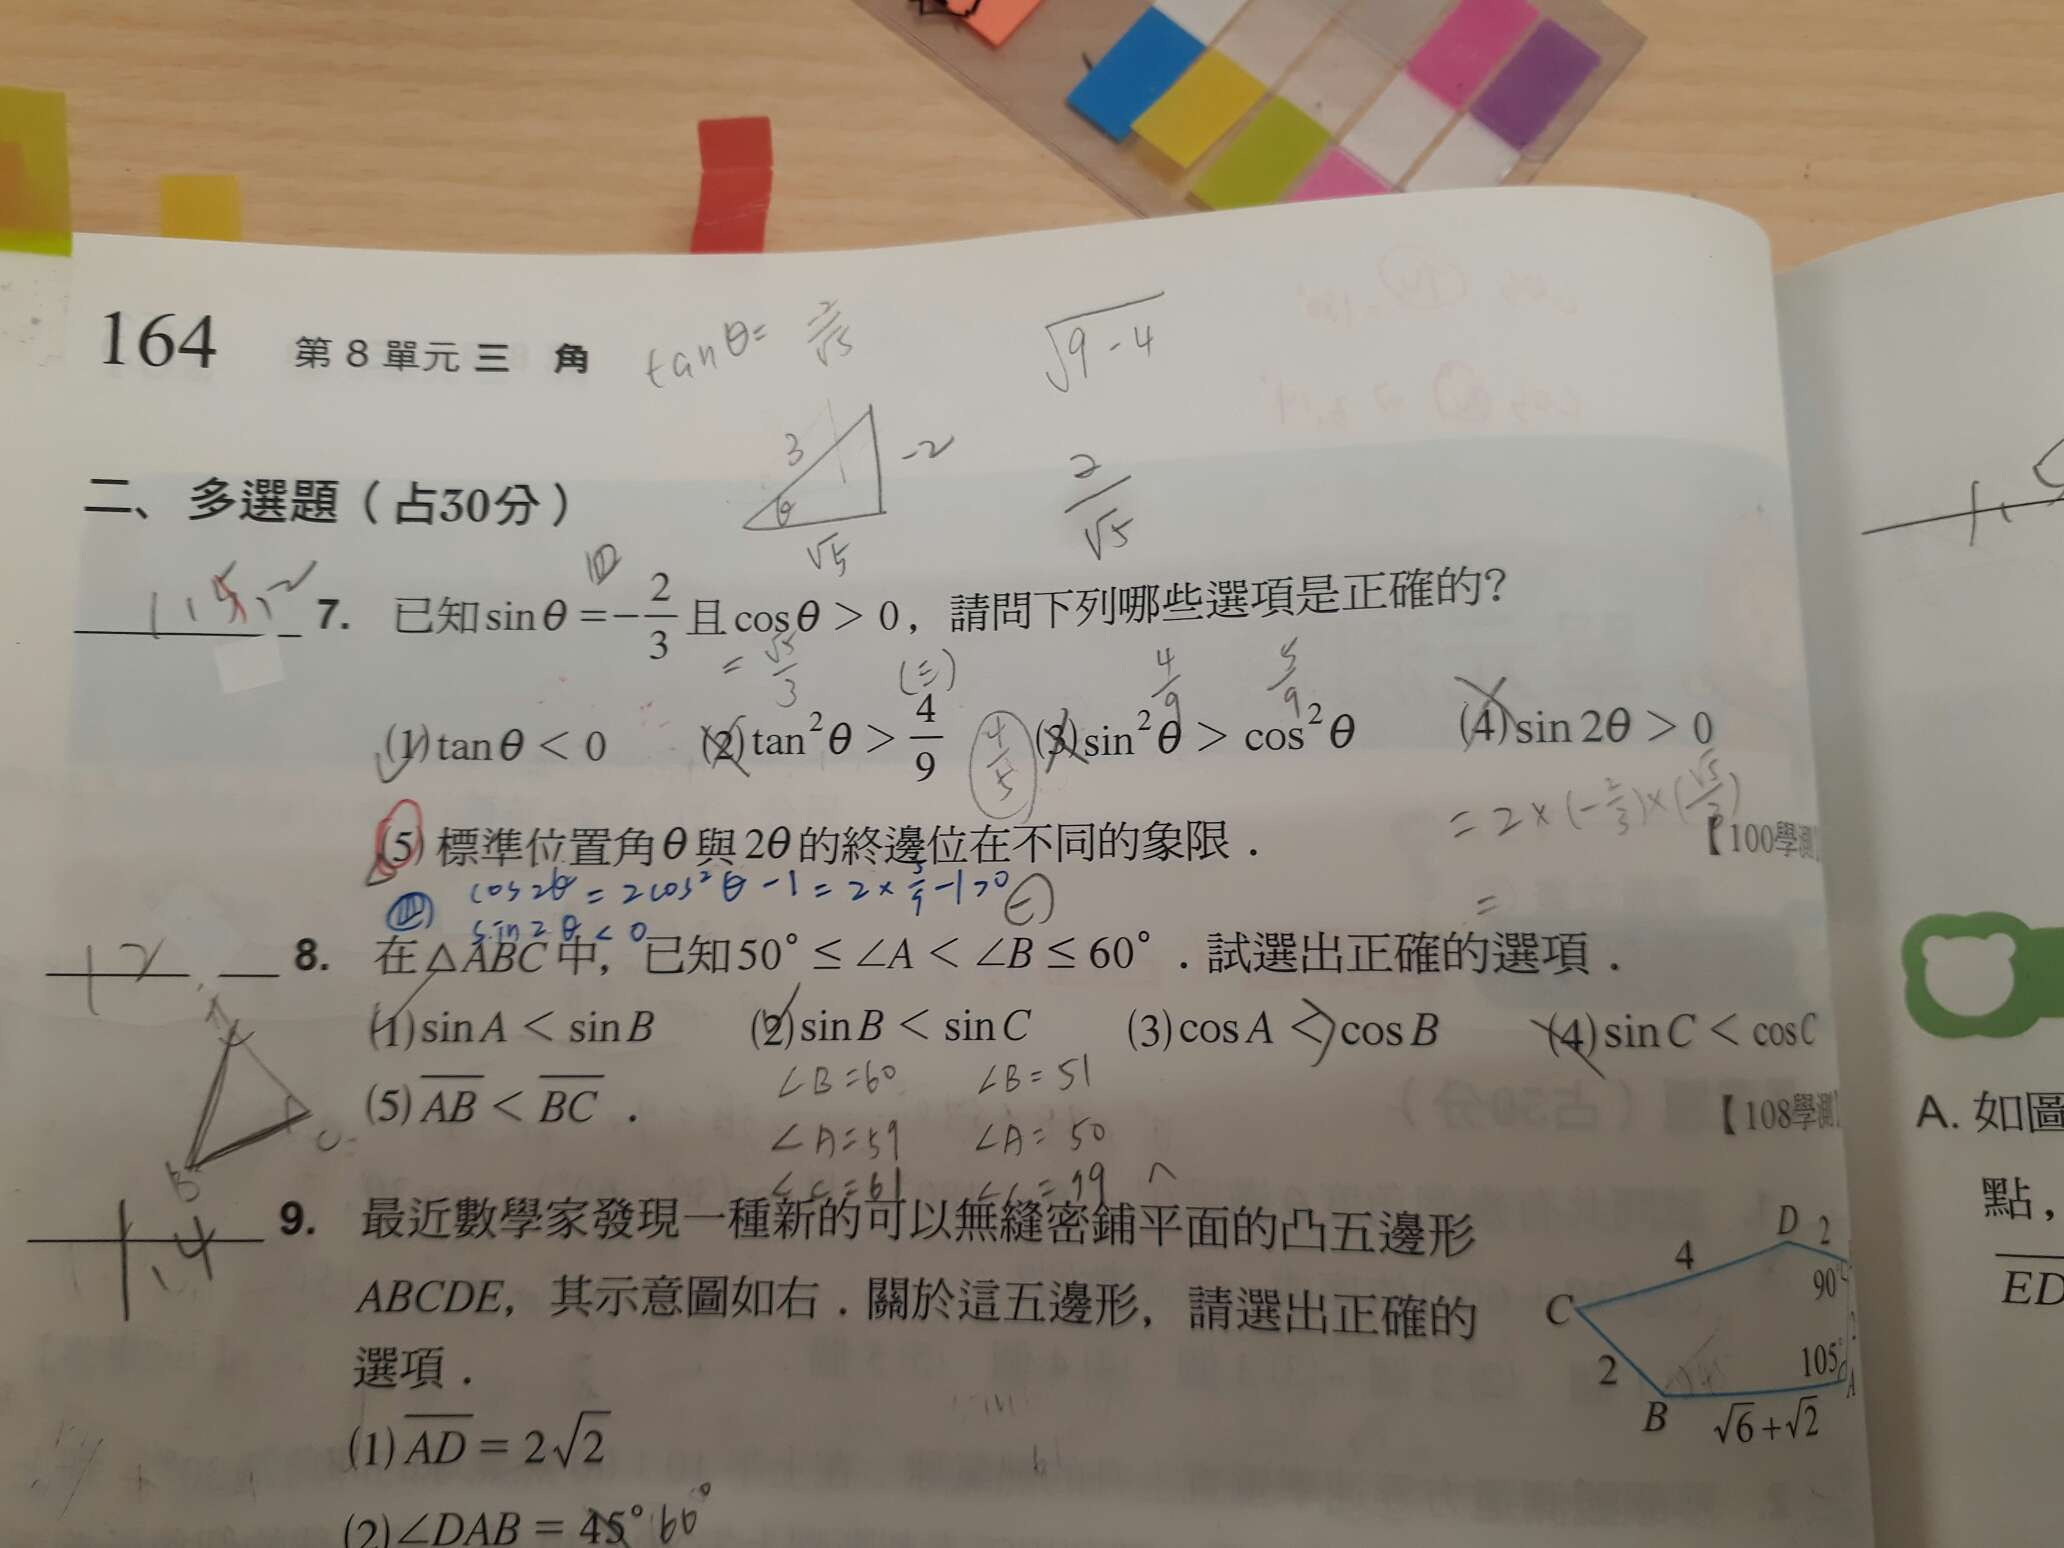 164 第 8 單元 三 角 tanθ= 2/√5 √9-4
3 -2 θ √5 2/√5
二、多選題（占30分）
1,5,2 7. 已知 sinθ = -2/3 且 cosθ > 0，請問下列哪些選項是正確的？
= √5/3 4/9 5/9
(1) tanθ < 0 (2) tan²θ > 4/9 4/5 (3) sin²θ > cos²θ (4) sin 2θ > 0
= 2×(-2/3)×(√5/3)
(5) 標準位置角 θ 與 2θ 的終邊位在不同的象限． 【100學測】
cos2θ = 2cos²θ -1 = 2×5/9 -1 >0
sin2θ < 0 =
12 8. 在 △ABC 中，已知 50° ≤ ∠A < ∠B ≤ 60° ．試選出正確的選項．
(1) sinA < sinB (2) sinB < sinC (3) cosA < cosB (4) sinC < cosC
∠B=60 ∠B=51
(5) AB < BC ． 【108學測】
∠A=59 ∠A=50
∠C=61 ∠C=79
A B C
1,4 9. 最近數學家發現一種新的可以無縫密鋪平面的凸五邊形
ABCDE，其示意圖如右．關於這五邊形，請選出正確的
選項．
(1) AD = 2√2
(2) ∠DAB = 45° 60°
D 2
4
90°
C
2
105°
2 A
B √6+√2
A. 如圖
點，
ED